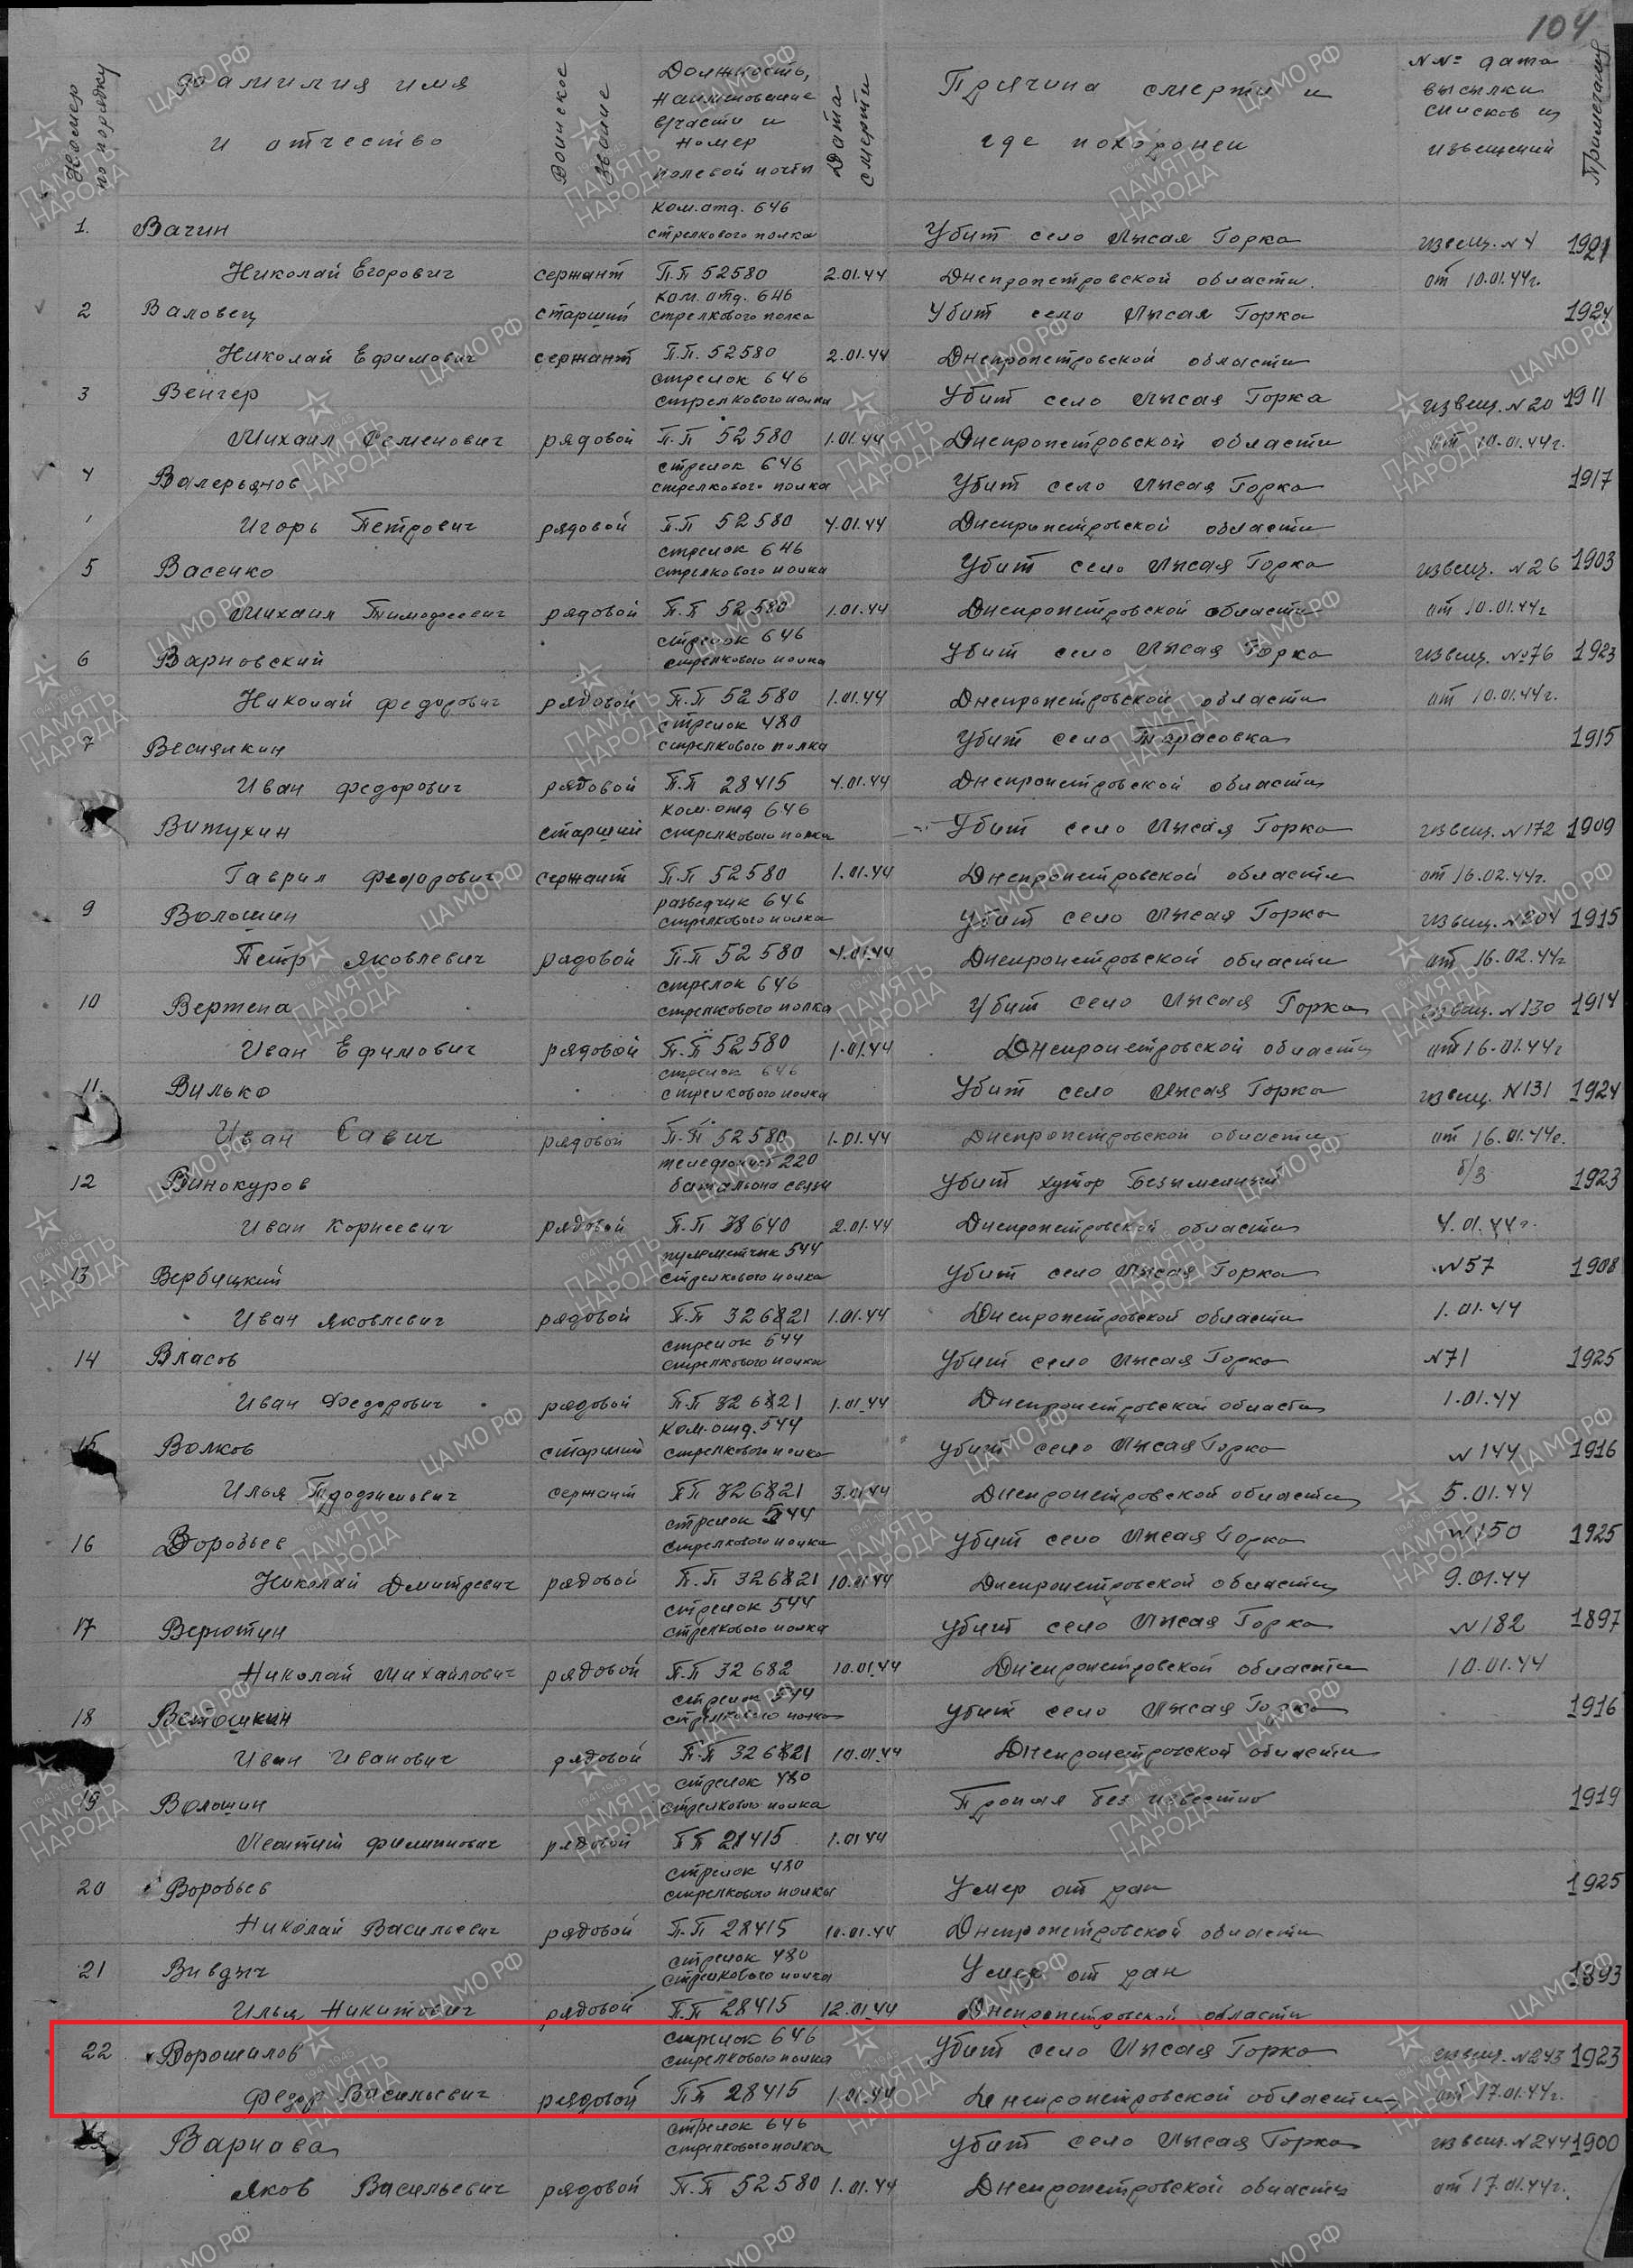 104
Номер по порядку
Фамилия имя и отчество
Воинское звание
Должность, наименование в/части и номер полевой почты
Дата смерти
Причина смерти и где похоронен
NNº дата высылки списков и извещений
Примечание
1. Вачин ком.отд. 646 стрелкового полка Убит село Лысая Горка извещ. N 4 1921
Николай Егорович сержант П.П 52580 2.01.44 Днепропетровской области. от 10.01.44г.
2 Валовец старший ком. отд. 646 стрелкового полка Убит село Лысая Горка 1924
Николай Ефимович сержант П.П. 52580 2.01.44 Днепропетровской области
3 Венгер стрелок 646 стрелкового полка Убит село Лысая Горка извещ. N 20 1911
Михаил Семенович рядовой П.П 52580 1.01.44 Днепропетровской области от 10.01.44г.
4 Валерьянов стрелок 646 стрелкового полка Убит село Лысая Горка 1917
Игорь Петрович рядовой П.П 52580 4.01.44 Днепропетровской области
5 Васенко стрелок 646 стрелкового полка Убит село Лысая Горка извещ. N 26 1903
Михаил Тимофеевич рядовой П.П 52580 1.01.44 Днепропетровской области от 10.01.44г
6 Варновский стрелок 646 стрелкового полка Убит село Лысая Горка извещ. Nº76 1923
Николай Федорович рядовой П.П 52580 1.01.44 Днепропетровской области от 10.01.44г.
7 Веснянкин стрелок 480 стрелкового полка Убит село Тарасовка 1915
Иван Федорович рядовой П.П 28415 4.01.44 Днепропетровской области
Витухин старший ком.отд 646 стрелкового полка Убит село Лысая Горка извещ. N172 1909
Гаврил Федорович сержант П.П 52580 1.01.44 Днепропетровской области от 16.02.44г.
9 Волошин разведчик 646 стрелкового полка Убит село Лысая Горка извещ. N204 1915
Петр Яковлевич рядовой П.П 52580 4.01.44 Днепропетровской области от 16.02.44г
10 Вертепа стрелок 646 стрелкового полка Убит село Лысая Горка извещ. N130 1914
Иван Ефимович рядовой П.П 52580 1.01.44 Днепропетровской области от 16.01.44г
11. Вилько стрелок 646 стрелкового полка Убит село Лысая Горка извещ. N131 1924
Иван Савич рядовой П.П 52580 1.01.44 Днепропетровской области от 16.01.44г.
12 Винокуров телефонист 220 батальона связи Убит хутор Безыменный б/з 1923
Иван Корнеевич рядовой П.П 38640 2.01.44 Днепропетровской области 4.01.44г.
13 Вербицкий пулеметчик 544 стрелкового полка Убит село Лысая Горка N57 1908
Иван Яковлевич рядовой П.П 326821 1.01.44 Днепропетровской области 1.01.44
14 Власов стрелок 544 стрелкового полка Убит село Лысая Горка N71 1925
Иван Федорович рядовой П.П 326821 1.01.44 Днепропетровской области 1.01.44
15 Волков старший ком.отд. 544 стрелкового полка Убит село Лысая Горка N 144 1916
Илья сержант ПП 326821 3.01.44 Днепропетровской области 5.01.44
16 Воробьев стрелок 544 стрелкового полка Убит село Лысая Горка N150 1925
Николай Дмитревич рядовой П.П 326821 10.01.44 Днепропетровской области 9.01.44
17 Верютин стрелок 544 стрелкового полка Убит село Лысая Горка N182 1897
Николай Михайлович рядовой П.П 32682 10.01.44 Днепропетровской области 10.01.44
18 Ветошкин стрелок 544 стрелкового полка Убит село Лысая Горка 1916
Иван Иванович рядовой П.П 326821 10.01.44 Днепропетровской области
19 Волошин стрелок 480 стрелкового полка Пропал без известно 1919
Леонтий Филиппович рядовой ПП 28415 1.01.44
20 Воробьев стрелок 480 стрелкового полка Умер от ран 1925
Николай Васильевич рядовой П.П 28415 10.01.44 Днепропетровской области
21 Вивдыч стрелок 480 стрелкового полка Умер от ран 1893
Илья Никитович рядовой П.П 28415 12.01.44 Днепропетровской области
22 Ворошилов стрелок 646 стрелкового полка Убит село Лысая Горка извещ. N243 1923
Федор Васильевич рядовой ПП 28415 1.01.44 Днепропетровской области от 17.01.44г.
Варнава стрелок 646 стрелкового полка Убит село Лысая Горка извещ. N244 1900
Яков Васильевич рядовой П.П 52580 1.01.44 Днепропетровской области от 17.01.44г.
ЦА МО РФ
ПАМЯТЬ НАРОДА
1941-1945